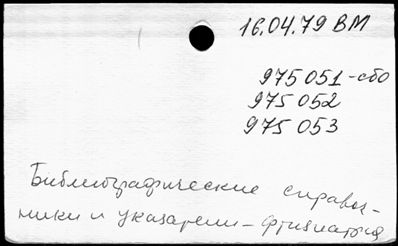 16.04.79 ВМ
975051-сбо
975052
975053
Библиографические справоч-
ники и указатели - Фтизиатрия